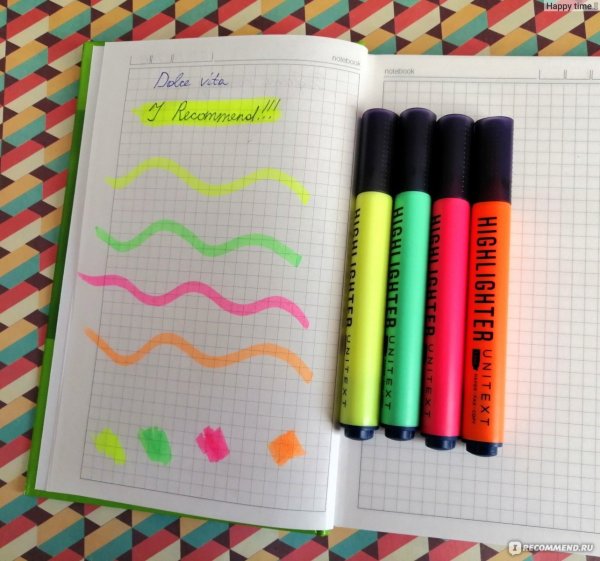 Happy time.
notebook
notebook
Dolce vita
I Recommend!!!
HIGHLIGHTER UNITEXT
HIGHLIGHTER UNITEXT
HIGHLIGHTER UNITEXT
HIGHLIGHTER UNITEXT
IRECOMMEND.RU